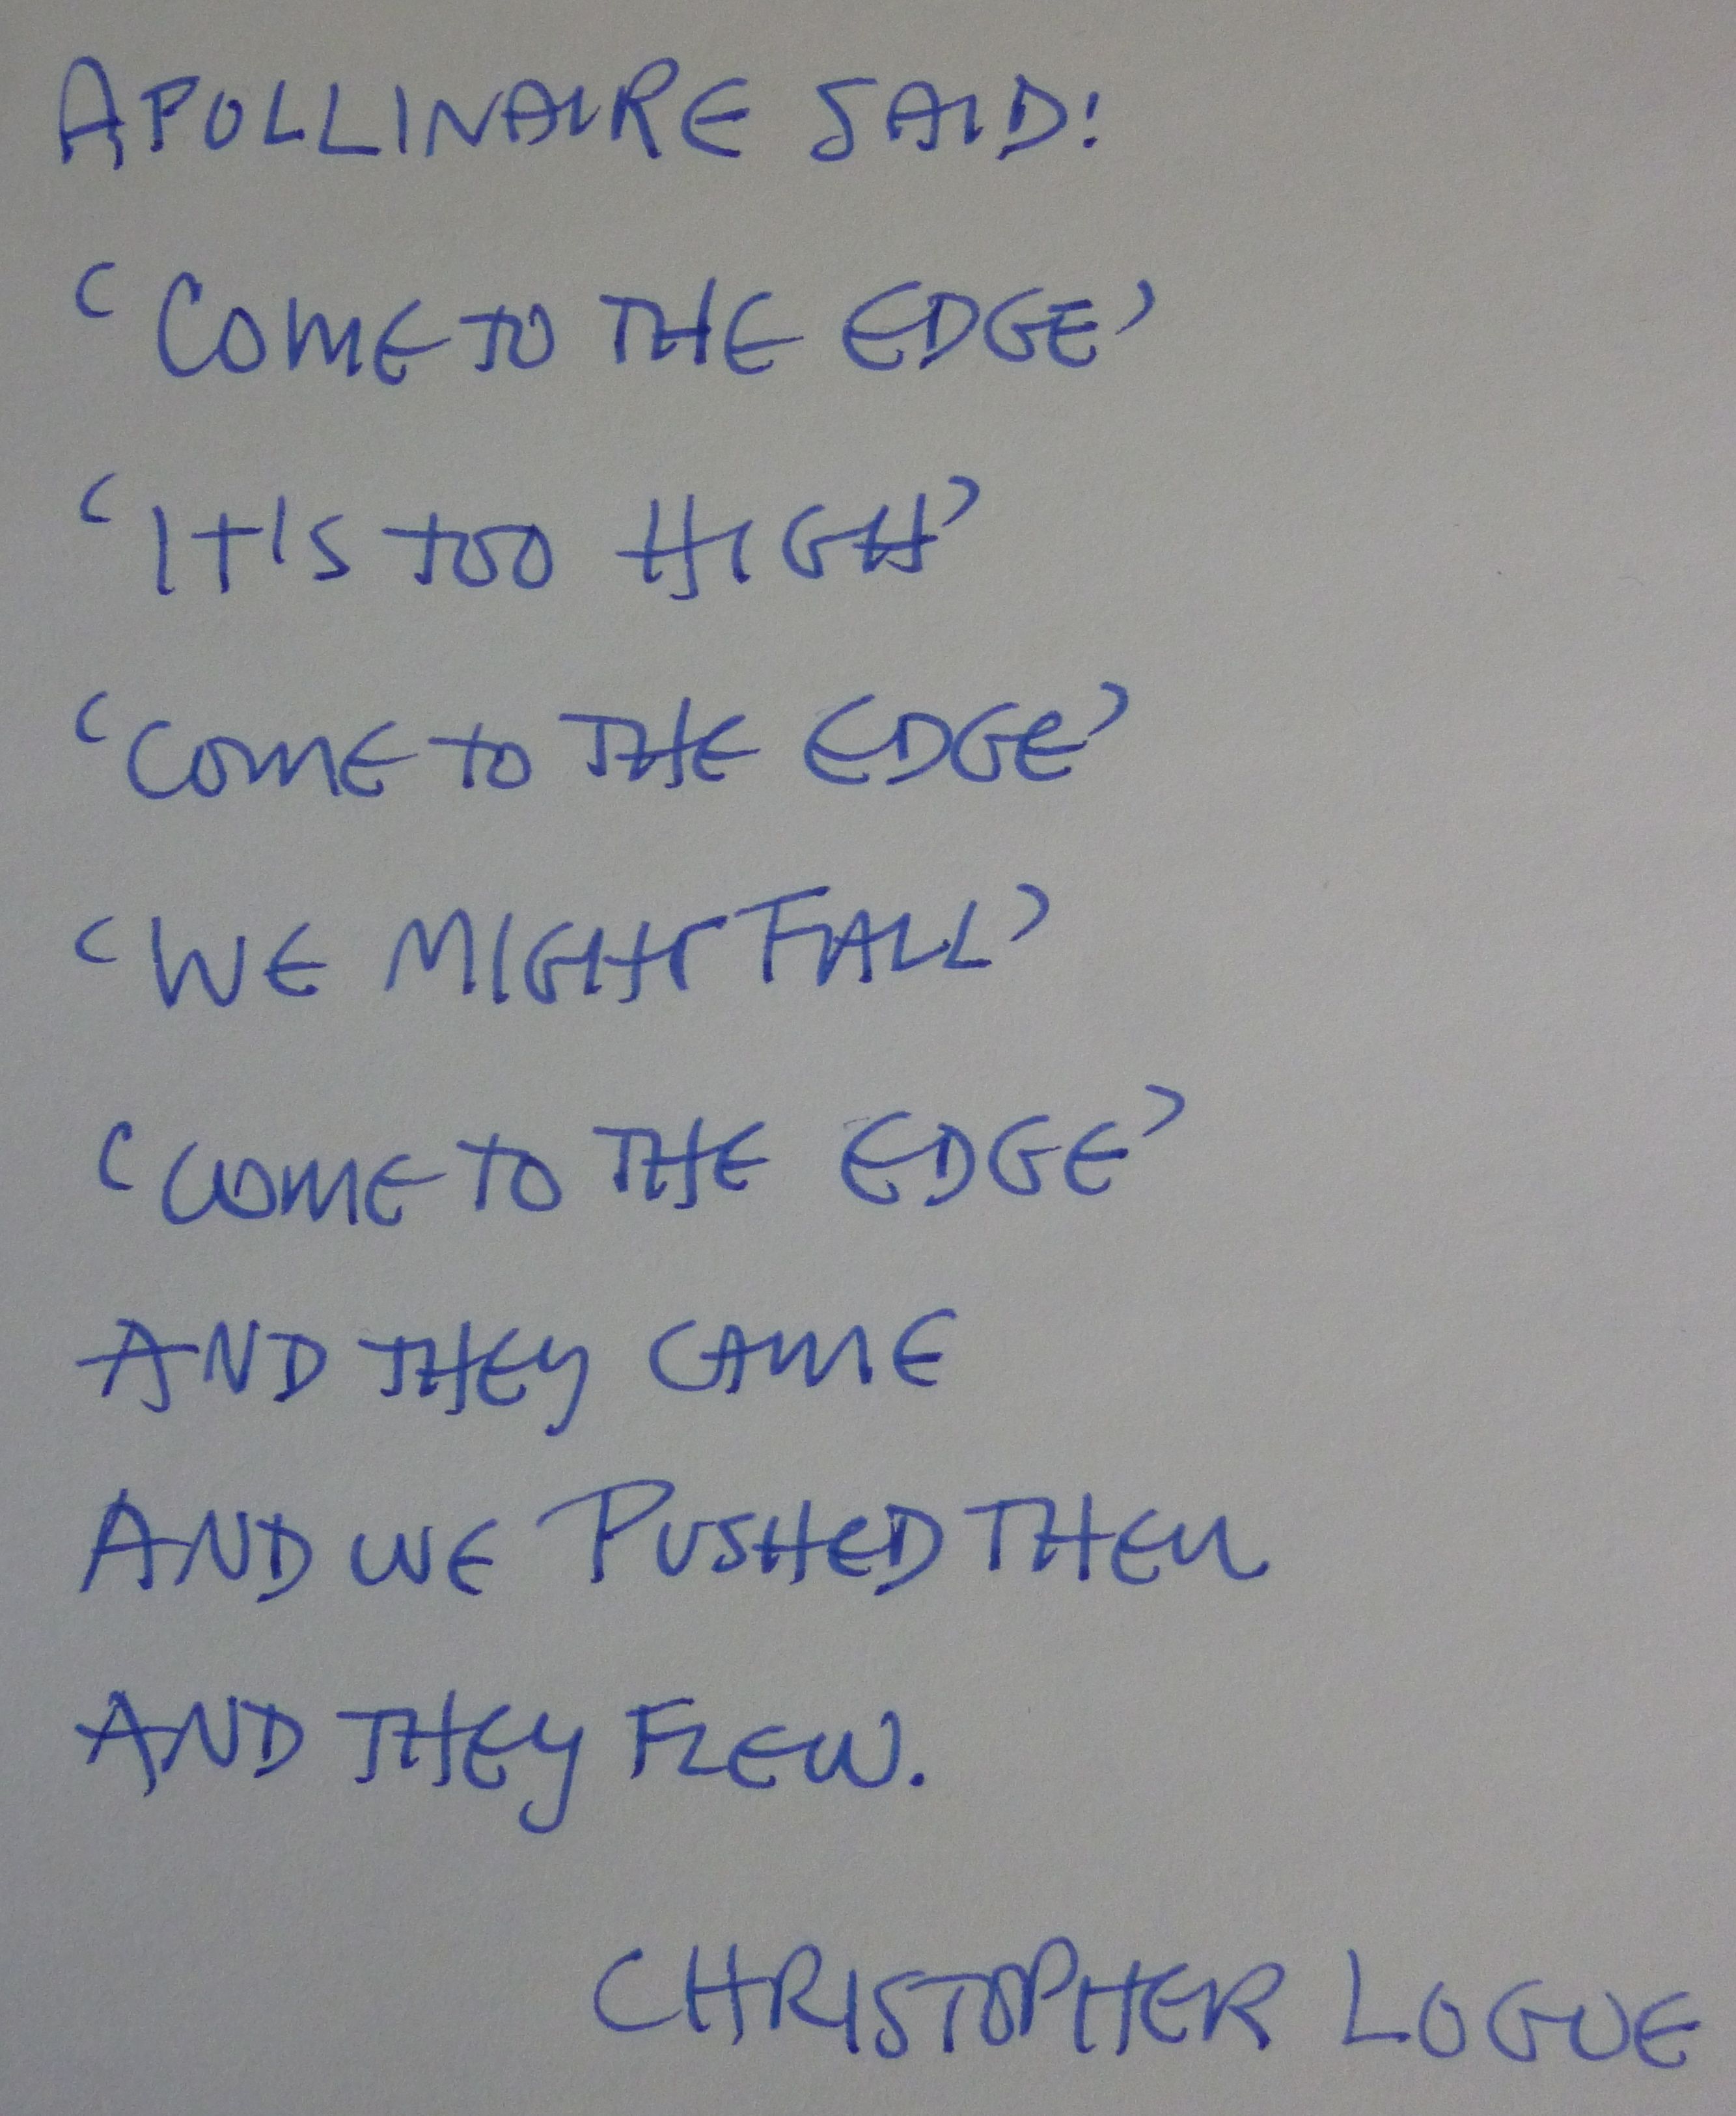 APOLLINAIRE SAID:
‘COME TO THE EDGE’
‘IT'S TOO HIGH’
‘COME TO THE EDGE’
‘WE MIGHT FALL’
‘COME TO THE EDGE’
AND THEY CAME
AND WE PUSHED THEM
AND THEY FLEW.
CHRISTOPHER LOGUE